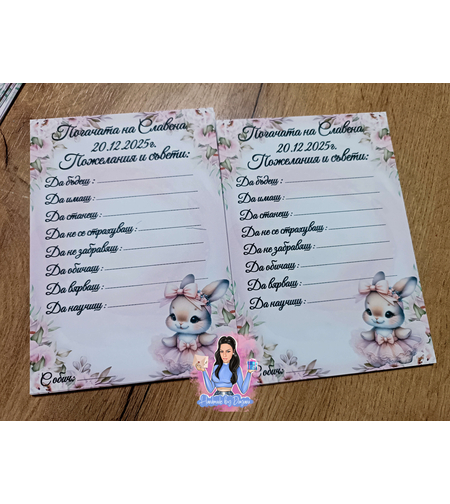 Погачата на Славена
20.12.2025г.
Пожелания и съвети:
Да бъдеш :
Да имаш :
Да станеш :
Да не се страхуваш :
Да не забравяш :
Да обичаш :
Да вярваш :
Да научиш :
С обич:
Погачата на Славена
20.12.2025г.
Пожелания и съвети:
Да бъдеш :
Да имаш :
Да станеш :
Да не се страхуваш :
Да не забравяш :
Да обичаш :
Да вярваш :
Да научиш :
обич: